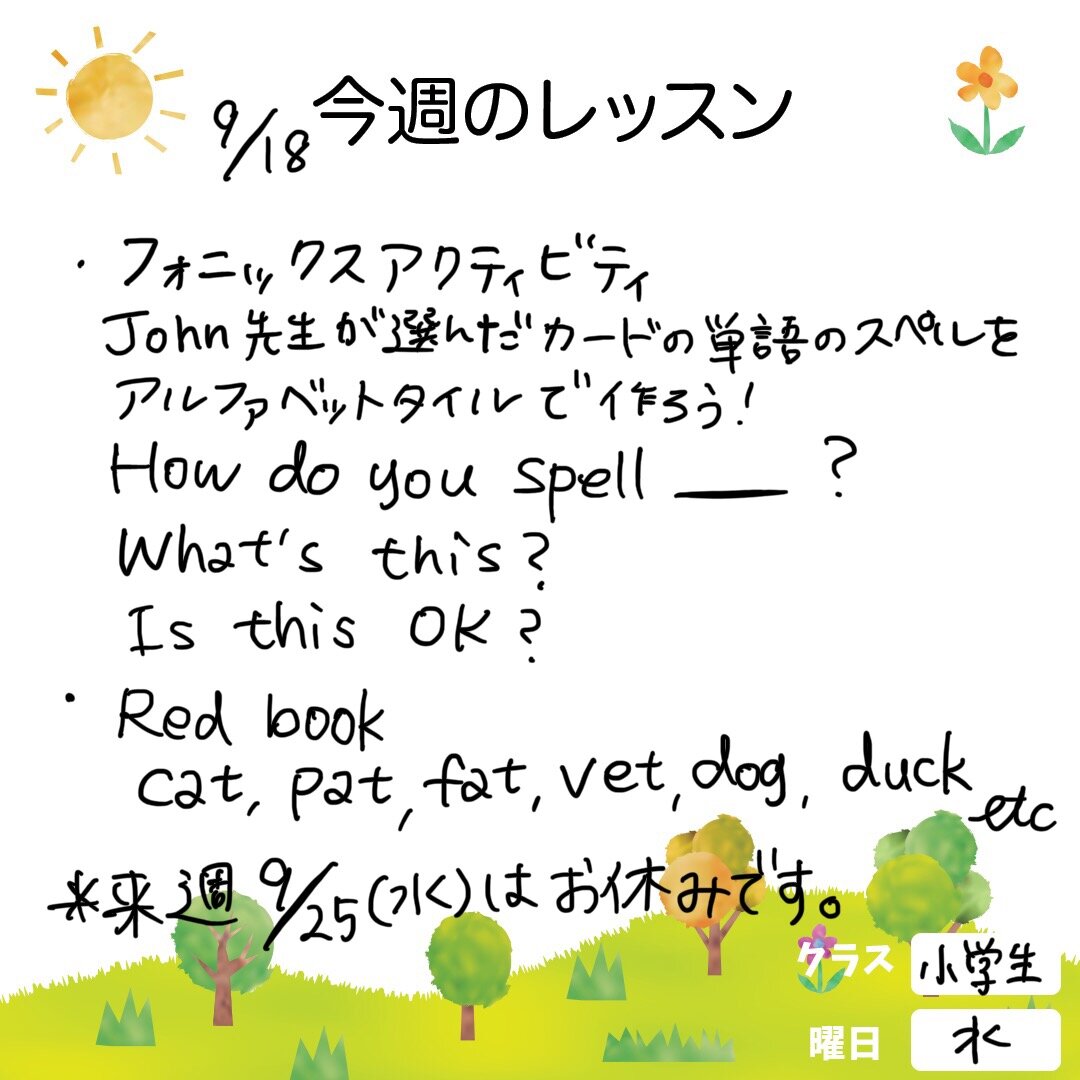 9/18 今週のレッスン
・フォニックスアクティビティ
John先生が選んだカードの単語のスペルを
アルファベットタイルで作ろう!
How do you spell ___ ?
What's this?
Is this OK?
・Red book
cat, pat, fat, vet, dog, duck etc
*来週 9/25(水)はお休みです。
クラス 小学生
曜日 水